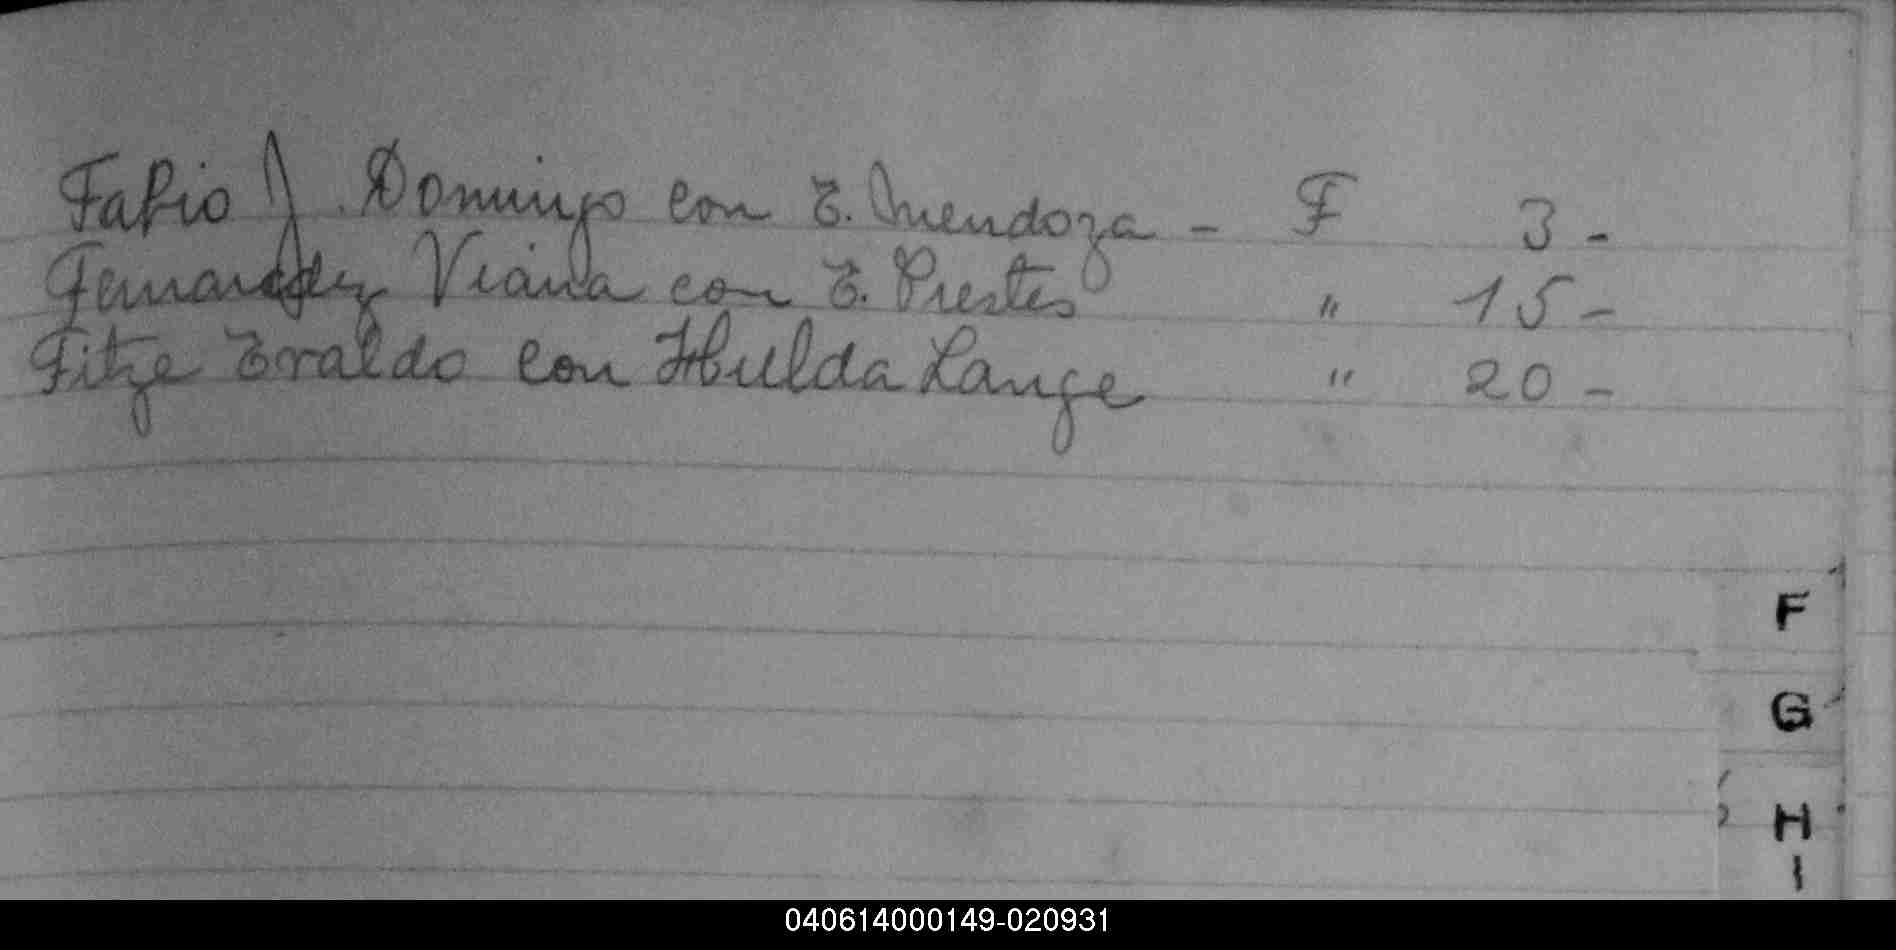 Fabio J. Domingo con E. Mendoza - F 3 -
Fernandez Viana con E. Prestes " 15 -
Fitze Eraldo con Hulda Lange " 20 -
F
G
H
I
040614000149-020931